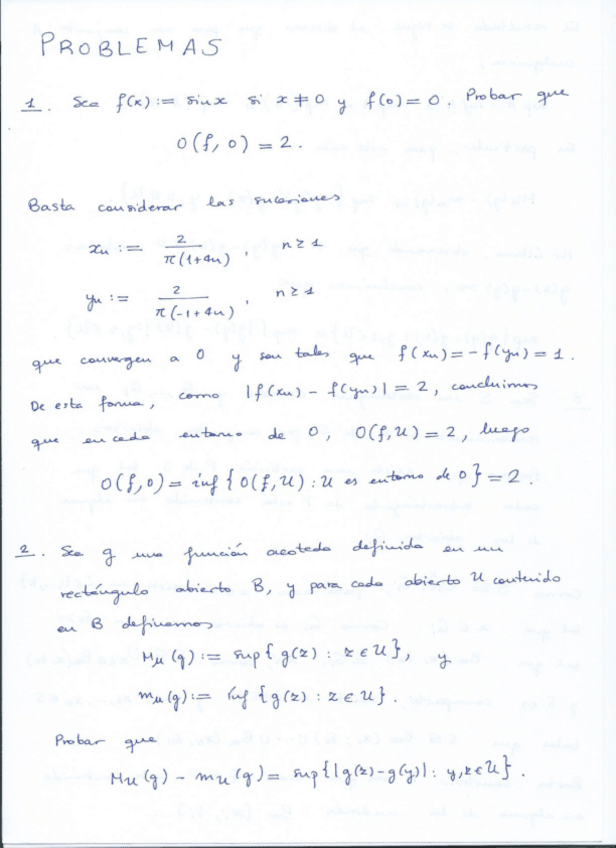 PROBLEMAS
1. Sea f(x) := sin x si x ≠ 0 y f(0) = 0. Probar que
O(f, 0) = 2.
Basta considerar las sucesiones
xn := 2 / π(1+4n) , n ≥ 1
yn := 2 / π(-1+4n) , n ≥ 1
que convergen a 0 y son tales que f(xn) = -f(yn) = 1.
De esta forma, como |f(xn) - f(yn)| = 2, concluimos
que en cada entorno de 0, O(f, U) = 2, luego
O(f, 0) = inf { O(f, U) : U es entorno de 0 } = 2.
2. Sea g una función acotada definida en un
rectángulo abierto B, y para cada abierto U contenido
en B definamos
MU(g) := sup { g(z) : z ∈ U }, y
mU(g) := inf { g(z) : z ∈ U }.
Probar que
MU(g) - mU(g) = sup { |g(z) - g(y)| : y, z ∈ U }.